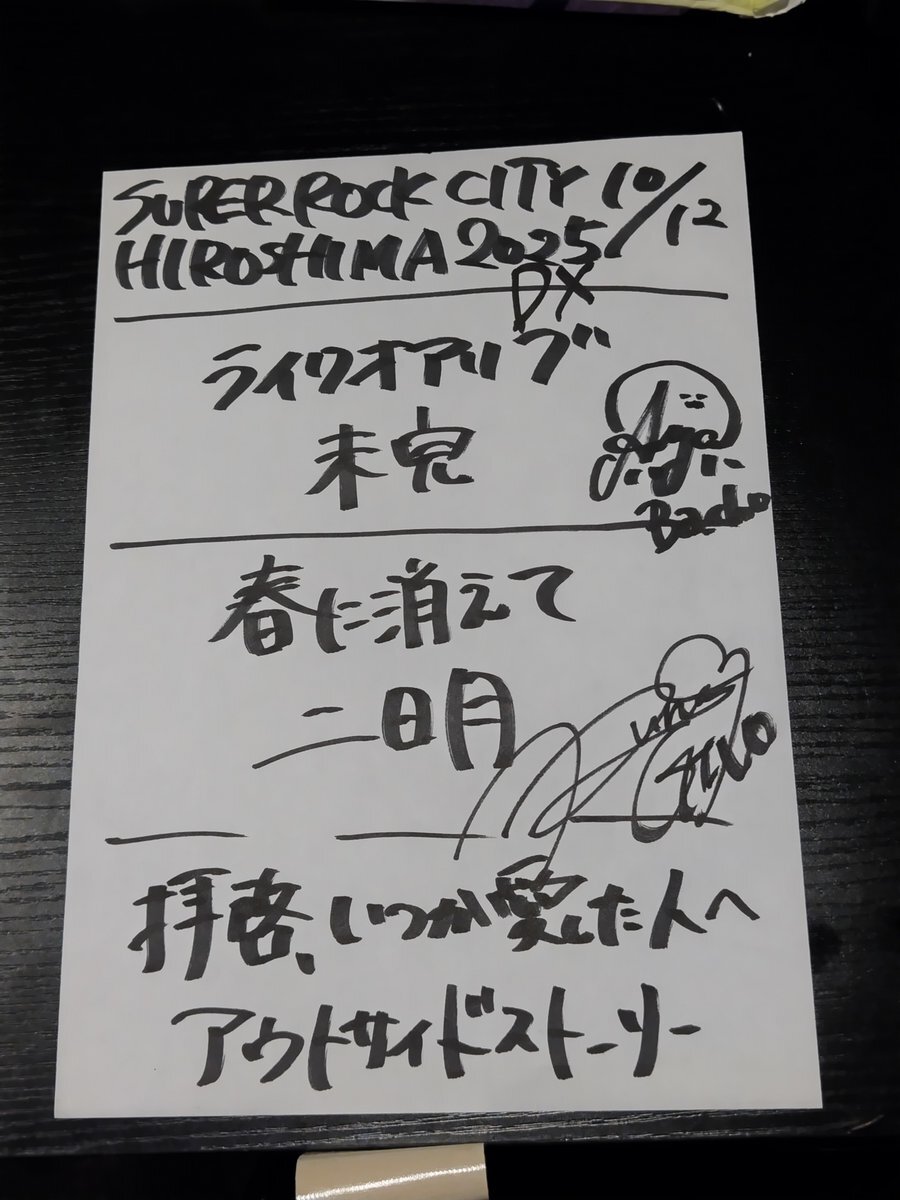 SUPER ROCK CITY 10/12
HIROSHIMA 2025
DX
ライクオアリブ
未完
Bacho
春に消えて
二日月
拝啓、いつか愛した人へ
アウトサイドストーリー